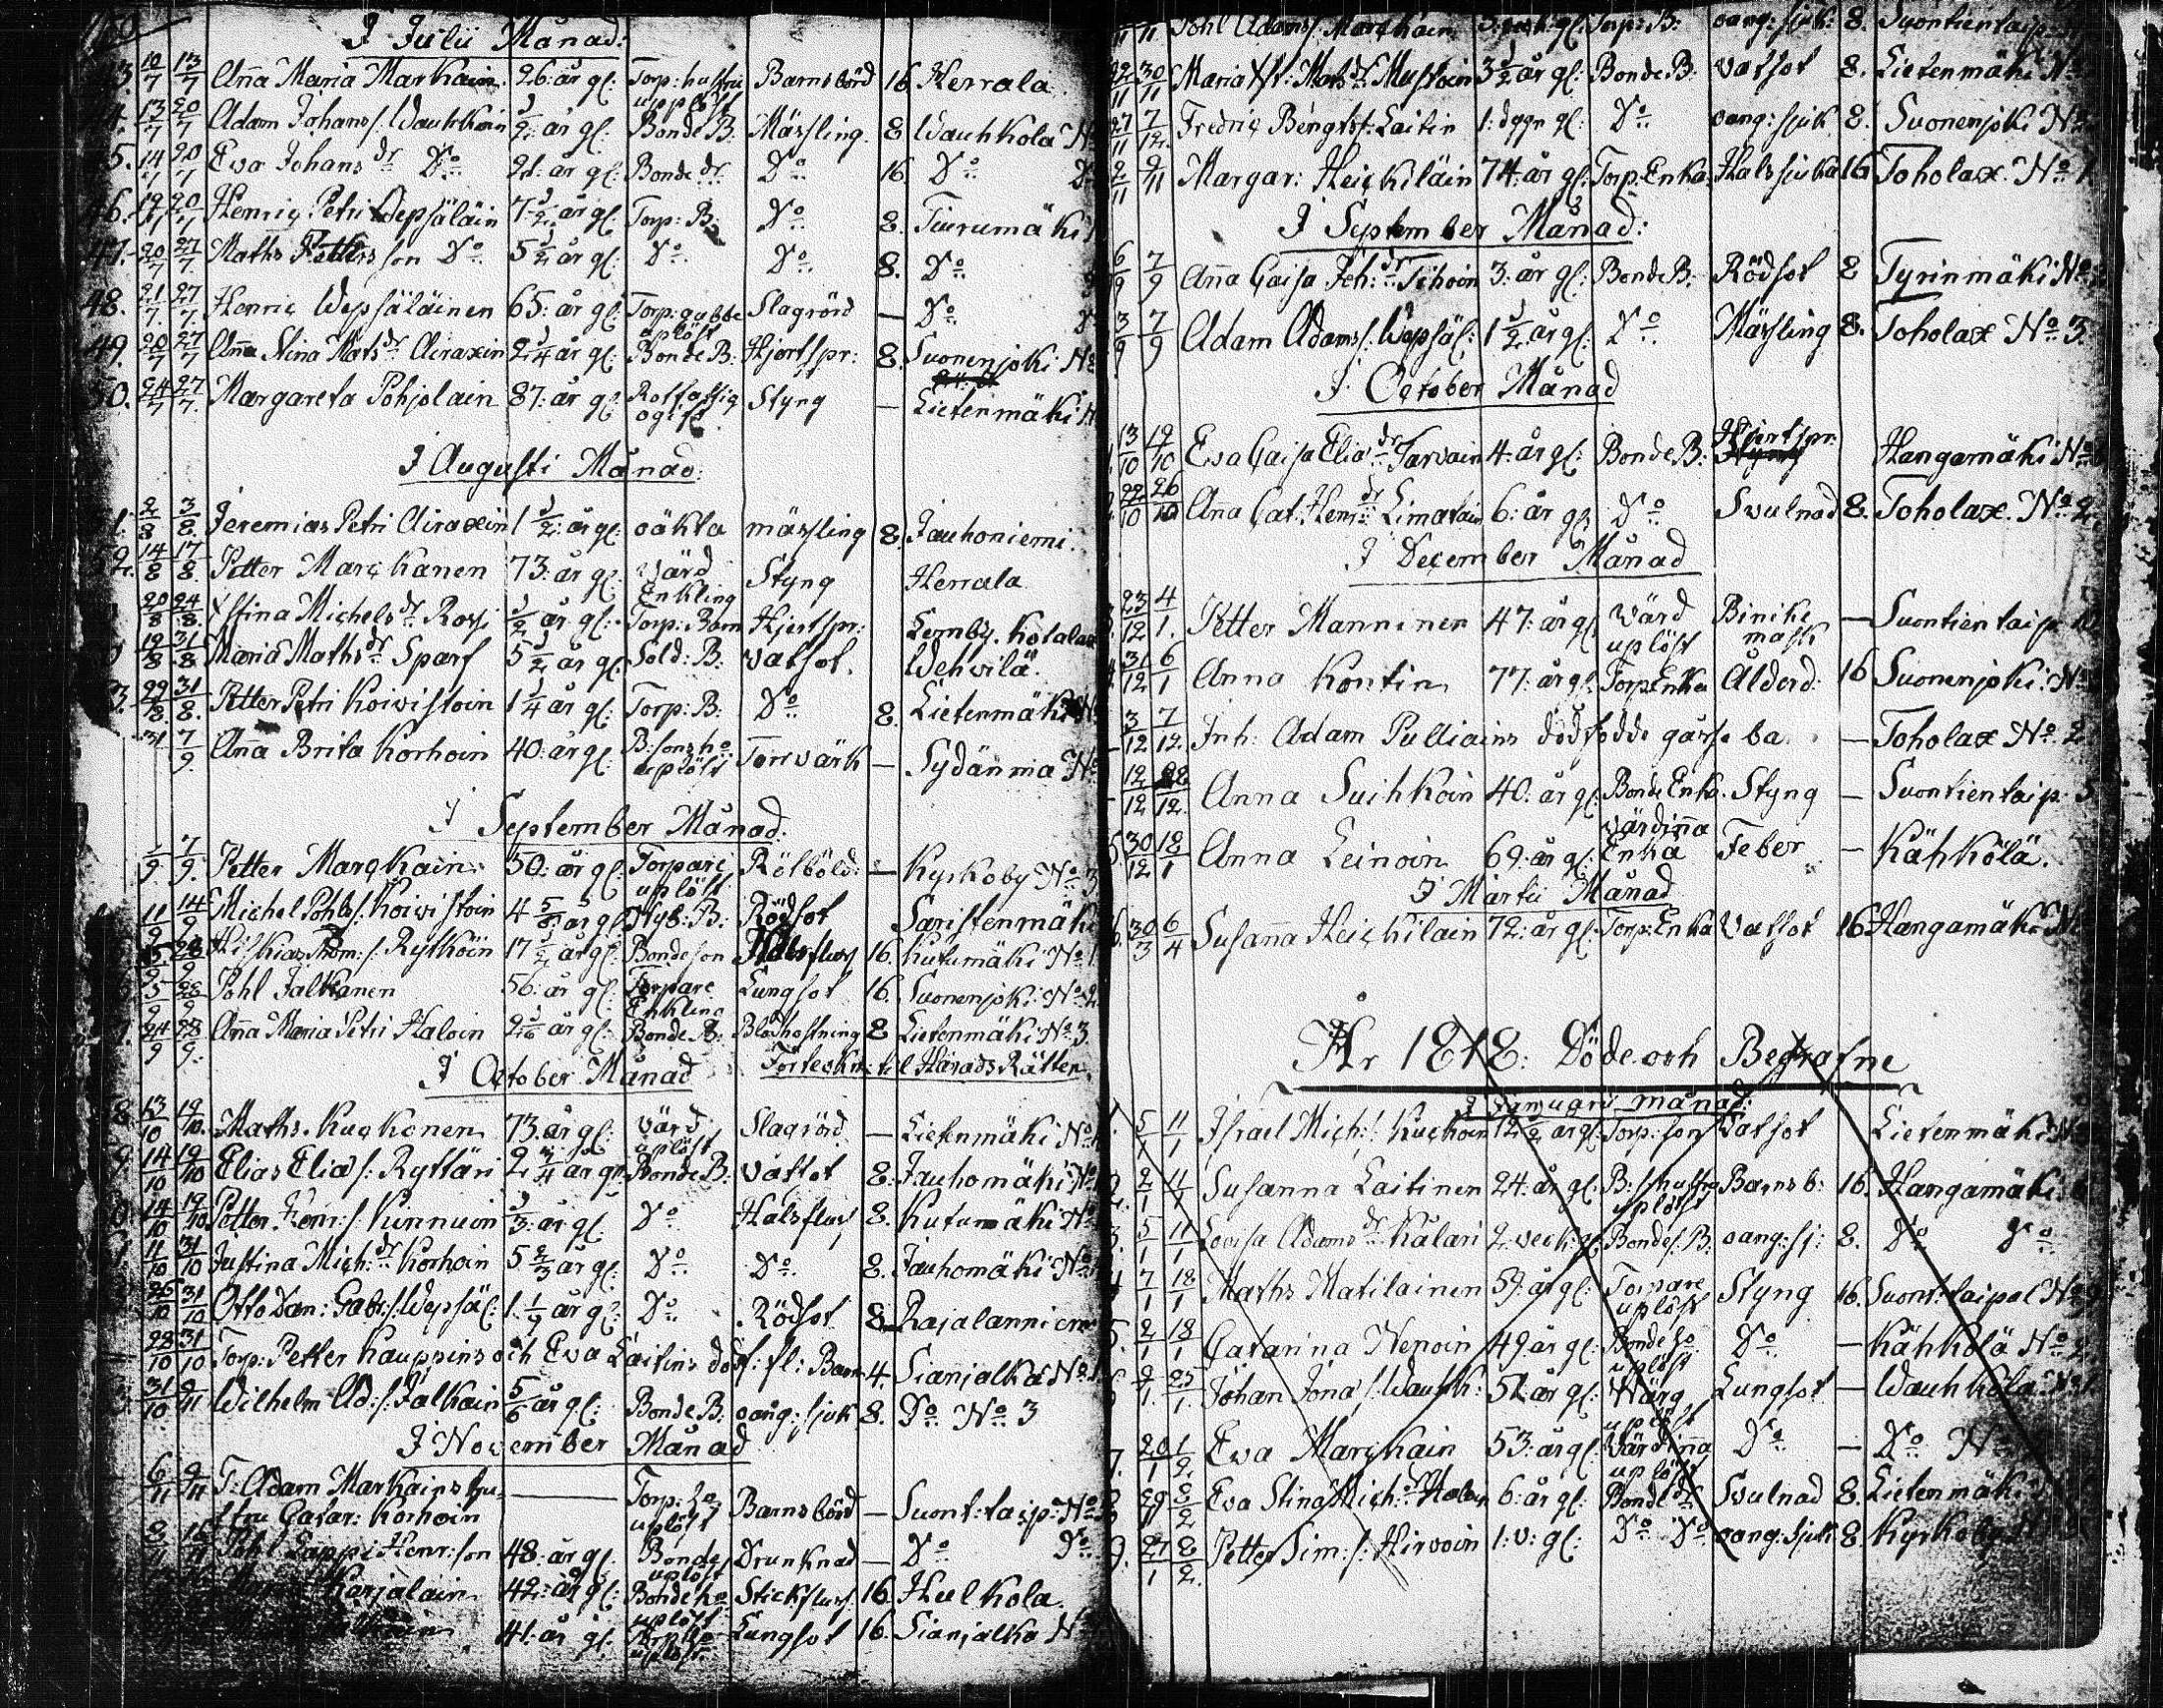 I Julii Månad:
3. 10/7 13/7 Anna Maria Markain 26: år gl: Torp: hustru upplöst Barnsbörd 16. Herrala
4. 13/7 20/7 Adam Johans s. Wauhkoin 1/2: år gl: Bonde B: Mässling 8 Wauhkola No
5. 14/7 20/7 Eva Johans dr Do 21: år gl: Bonde dr Do 16. Do
46. 19/7 20/7 Henric Petri Wepsäläin 7 1/2 år gl: Torp: B: Do 8. Tiirumäki
47. 20/7 27/7 Maths Petters son Do 5 1/2 år gl: Do Do 8. Do
48. 21/7 27/7. Henric Wepsäläinen 65: år gl: Torp: gubbe uplöst Slagrörd — Do
49. 20/7 27/7 Anna Stina Mats dr Airaxin 2 1/4 år gl: Bonde B: Hjertspr: 8. Suonenjoki No
50. 24/7 27/7. Margareta Pohjolain 87: år gl: Rotfattig ogift Styng — Lietenmäki
I Augusti Månad:
2/8 3/8 Jeremias Petri Airaxin 1 1/2: år gl: oäkta mässling 8. Jauhoniemi.
52. 14/8 17/8. Petter Marckanen 73: år gl: Värd Enkling Styng Herrala
20/8 24/8. Stina Michels dr Rossi 1/2 år gl: Torp: Barn Hjertspr: Lernby. Kotala
19/8 31/8 Maria Maths dr Sparf 5 1/2 år gl: Sold: B: vatsot. Wehvilä.
3. 29/8. 31/8. Petter Petri Koivistoin 1 1/4 år gl: Torp: B: Do 8. Lietenmäki No
31 7/9. Anna Brita Korhoin 40: år gl: B: sons ho uplöst Torrvärk — Sydänmä No
I September Månad:
7/9. Petter Marckain 50: år gl: Torpare uplöst Rötböld: — Kyrkoby No 3
11/9 14/9 Michel Pohls s. Koivistoin 4 5/6: år gl: Nyb: B: Rödsot Saristenmäki
5/9 28/9 Hiskias Thom: s. Rytköin 17 1/2 år gl: Bondeson Halsfluss 16. Kutumäki No 1
5/9 28/9 Pohl Jalkanen 56: år gl: Torpare Enkling Lungsot 16. Suonenjoki No 2
24/9 28/9. Anna Maria Petri Haloin 2 1/6 år gl: Bonde B: Blodhostning 8 Lietenmäki No 3
I October Månad Förteckn: til Härads Rätten.
8. 13/10 19/10. Maths. Kuckonen 73. år gl: Värd uplöst Slagrörd — Lietenmäki No
9. 14/10 19/10 Elias Elias s: Ryttäri 2 3/4 år gl: Bonde B: Vatsot 8: Jauhomäki
14/10 19/10. Petter Henr: s: Kinnuin 1/3: år gl: Do Halsfluss 8. Kutumäki No
11/10 31/10 Justina Mich: dr Korhoin 5 2/3 år gl: Do Do 8. Jauhomäki No
25/10 31/10 Otto Dan: Gabr: s. Wepsäl: 1. 1/9 år gl: Do Rödsot 8. Rajalanniem
28/10 31/10 Torp: Petter Kauppins och Eva Laitins döf: fl: Barn 4. Sianjalka No 1
31/10. 9/11 Wilhelm Ad: s: Jalkain 5/6 år gl: Bonde B: oang: sjuk 8. Do No 3
I November Månad
6/11 9/11 T: Adam Markains hustru Catar: Korhoin — Torp: ho uplöst Barnsbörd — Suont: taip: No
8/11 16/11 Pohl Lappi Henr: son 48: år gl: Bonde uplöst Drunknad — Do Do
Karjalain 42: år gl: Bonde ho uplöst Stickfluss: 16. Hulkola.
41: år gl: Torp: ho uplöst Lungsot 16. Sianjalka No
11 11 Pohl Adams s. Marckain 3: veck: gl: Torp: B: oang: sjuk: 8. Suontientaip
22/11 30/11 Maria Kst: Mats dr Mustoin 3 1/2 år gl: Bonde B: Vatsot 8. Lietenmäki No
27/11 7/12. Fredric Bengts s: Laitin 1: dygn gl: Do oang: sjuk 8. Suonenjoki No 2
2/11 9/11 Margar: Heickiläin 74: år gl: Torp: Enka Halssjuka 16. Toholax. No 1.
I September Månad:
6/9 7/9 Anna Caisa Joh: dr Tihoin 3: år gl: Bonde B: Rödsot 8 Tyrinmäki No
3/9 7/9 Adam Adams s. Wepsäl: 1 1/2 år gl: Do Mässling 8. Toholax No 3.
I October Månad
13/10 19/10 Eva Caisa Elias dr Tarvain 4: år gl: Bonde B: Hjertspr: Hangamäki No
22/10 26/10 Anna Cat: Henr dr Limatain 6: år gl: Do Svulnad 8. Toholax. No 2
I December Månad
23/12 4/1. Petter Manninen 47: år gl: Värd uplöst Binike mask — Suontientaip
31/12 6/1 Anna Kontin 77: år gl: Torp Enka Ålderd: 16 Suonenjoki: No
3/12 7/12. Inh: Adam Pulliains dödfödde gåsse ba — Toholax No 2
12/12 22/12. Anna Suihkoin 40: år gl: Bonde Enka. Styng — Suontientaip. 3
30/12 18/1 Anna Leinoin 69: år gl: Värdinna Enka Feber — Kähkölä.
I Martii Månad
30/3 6/4 Susanna Heickilain 72: år gl: Torp: Enka Vatsot 16 Hangamäki No
År 1818: Döde och Begrafne
I Januari månad:
5/1 11/1 Israel Mich: s. Kuckoin 12 1/2 år gl: Torp: son Vatsot Lietenmäki
2/1 11/1 Susanna Laitinen 24: år gl: B: s. hustru uplöst Barnsb: 16. Hangamäki
3. 5/1 11/1 Lovisa Adams dr Kalari 2 veck: gl: Bondes. B: oang: sj: 8. Do Do
4 7/1 18/1 Maths Matilainen 59: år gl: Torpare uplöst Styng 16. Suont: taipal No
5. 2/1 18/1 Catarina Nenoin 49: år gl: Bonde ho uplöst Do — Kähkölä No 2
9/1. 25/1. Johan Jonas s. Wauhk: 51: år gl: Wärd uplöst Lungsot — Wauhkola. No 1.
7. 20/1 1/2. Eva Marckain 53: år gl: Värdinna uplöst Do — Do No
29/1 8/2 Eva Stina Mich: dr Haloin 6: år gl: Bonde dr Svulnad 8. Lietenmäki
9. 27/1 8/2. Petter Sim: s: Hirvoin 1: v: gl: Do Do oang: sjuk 8. Kyrkoby No